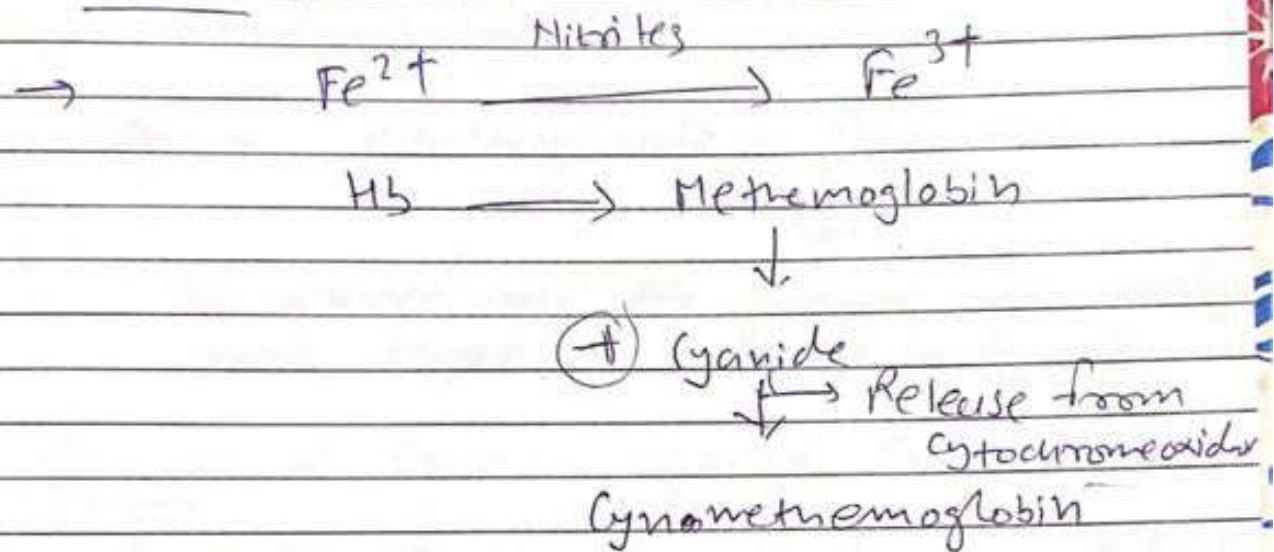 Nitrites
→ Fe²⁺ → Fe³⁺
Hb → Methemoglobin
↓
⊕ Cyanide
↓→ Release from
cytochromeoxidase
Cynamethemoglobin